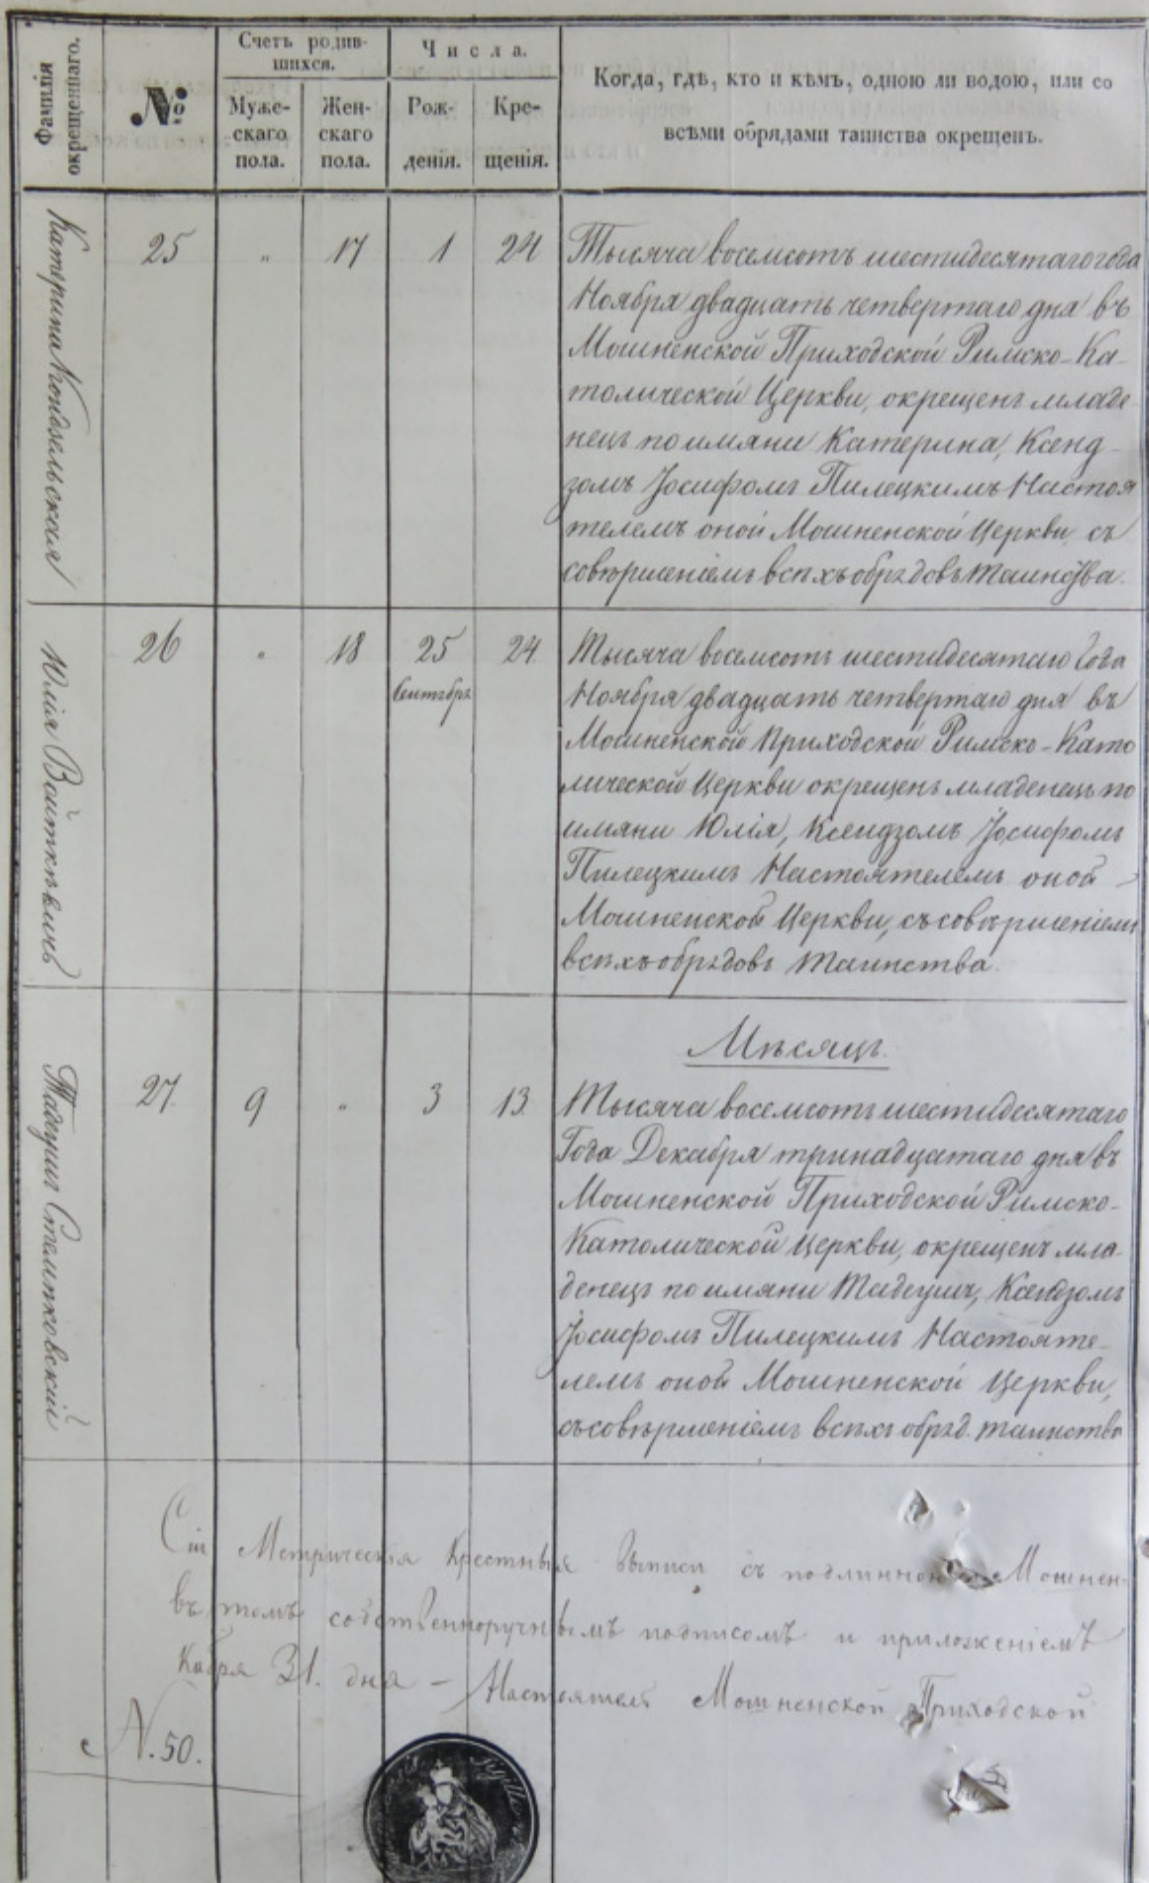 Фамилія окрещеннаго.
№
Счетъ родив-
шихся.
Муже-
скаго
пола.
Жен-
скаго
пола.
Числа.
Рож-
денія.
Кре-
щенія.
Когда, гдѣ, кто и кѣмъ, одною ли водою, или со
всѣми обрядами таинства окрещенъ.
Катерина
25 " 17 1 24
Тысяча восемсотъ шестидесятаго года
Ноября двадцать четвертаго дня въ
Мошненской Приходской Римско-Ка-
толической Церкви, окрещенъ младе-
нецъ по имяни Катерина, Ксенд-
зомъ Іосифомъ Пилецкимъ Настоя
телемъ оной Мошненской Церкви съ
совершеніемъ всѣхъ обрядовъ таинства.
Юлія Войткѣвичъ
26 " 18 25 24
Сентября
Тысяча восемсотъ шестидесятаго Года
Ноября двадцать четвертаго дня въ
Мошненской Приходской Римско-Като
лической Церкви окрещенъ младенецъ по
имяни Юлія, Ксендзомъ Іосифомъ
Пилецкимъ Настоятелемъ оной
Мошненской Церкви, съ совѣршеніемъ
всѣхъ обрядовъ таинства.
Мѣсяцъ.
Тадеушъ Стемпковскій
27. 9 " 3 13
Тысяча восемсотъ шестидесятаго
Года Декабря тринадцатаго дня въ
Мошненской Приходской Римско-
Католической Церкви, окрещенъ мла-
денецъ по имяни Тадеушъ, Ксендзомъ
Іосифомъ Пилецкимъ Настояте-
лемъ оной Мошненской Церкви,
съ совѣршеніемъ всѣхъ обряд. таинства
Сіи Метрическія Крестныя Выписи съ подлинною Мошнен-
въ томъ собственноручнымъ подписомъ и приложеніемъ
кабря 31. дня - Настоятель Мошненской Приходской
N. 50.